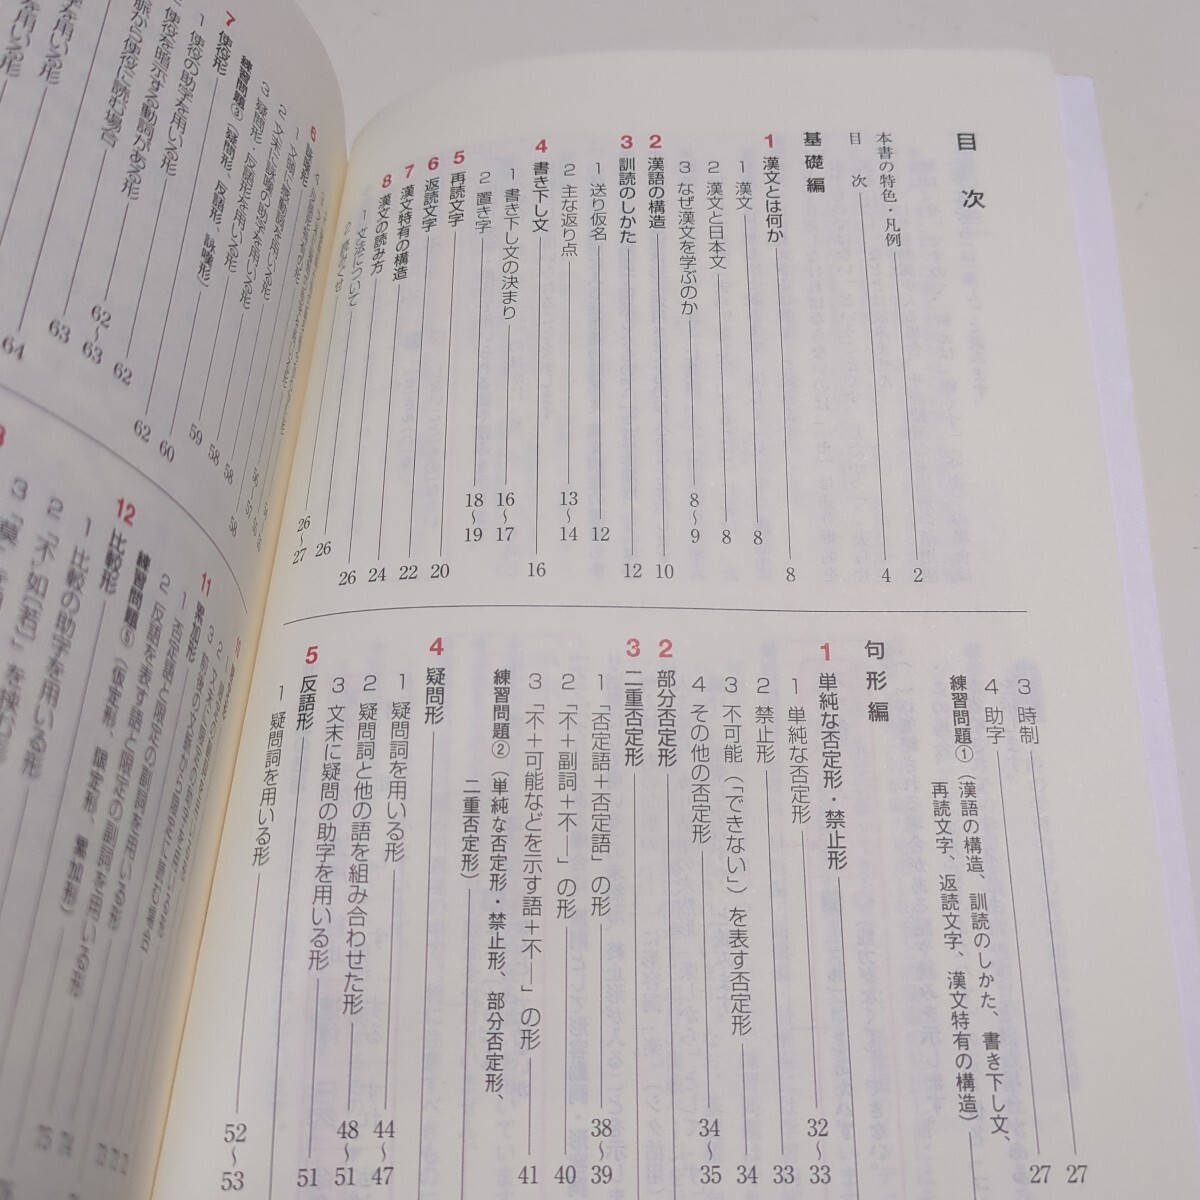 目次
本書の特色・凡例 2
目次 4
基礎編
1 漢文とは何か 8
1 漢文 8
2 漢文と日本文 8
3 なぜ漢文を学ぶのか 8～9
2 漢語の構造 10
3 訓読のしかた 12
1 送り仮名 12
2 主な返り点 13～14
4 書き下し文 16
1 書き下し文の決まり 16～17
2 置き字 18～19
5 再読文字 20
6 返読文字 22
7 漢文特有の構造 24
8 漢文の読み方 26
1 文法について 26
26～27
3 時制 27
4 助字 27
練習問題① (漢語の構造、訓読のしかた、書き下し文、
再読文字、返読文字、漢文特有の構造)
句形編
1 単純な否定形・禁止形
1 単純な否定形 32～33
2 禁止形 33
3 不可能(「できない」)を表す否定形 34
4 その他の否定形 34～35
2 部分否定形
3 二重否定形
1 「否定語+否定語」の形 38～39
2 「不+副詞+不―」の形 40
3 「不+可能などを示す語+不―」の形 41
練習問題② (単純な否定形・禁止形、部分否定形、
二重否定形)
4 疑問形
1 疑問詞を用いる形 44～47
2 疑問詞と他の語を組み合わせた形 48～51
3 文末に疑問の助字を用いる形 51
5 反語形
1 疑問詞を用いる形 52～53
練習問題③ (疑問形、反語形、詠嘆形)
7 使役形
1 使役の助字を用いる形 62
62～63
63
64
11 累加形
1 否定語と限定の副詞を用いる形
2 反語を表す語と限定の副詞を用いる形
練習問題⑤ (仮定形、限定形、累加形)
12 比較形
1 比較の助字を用いる形
2 「不如[若]」を用いる形